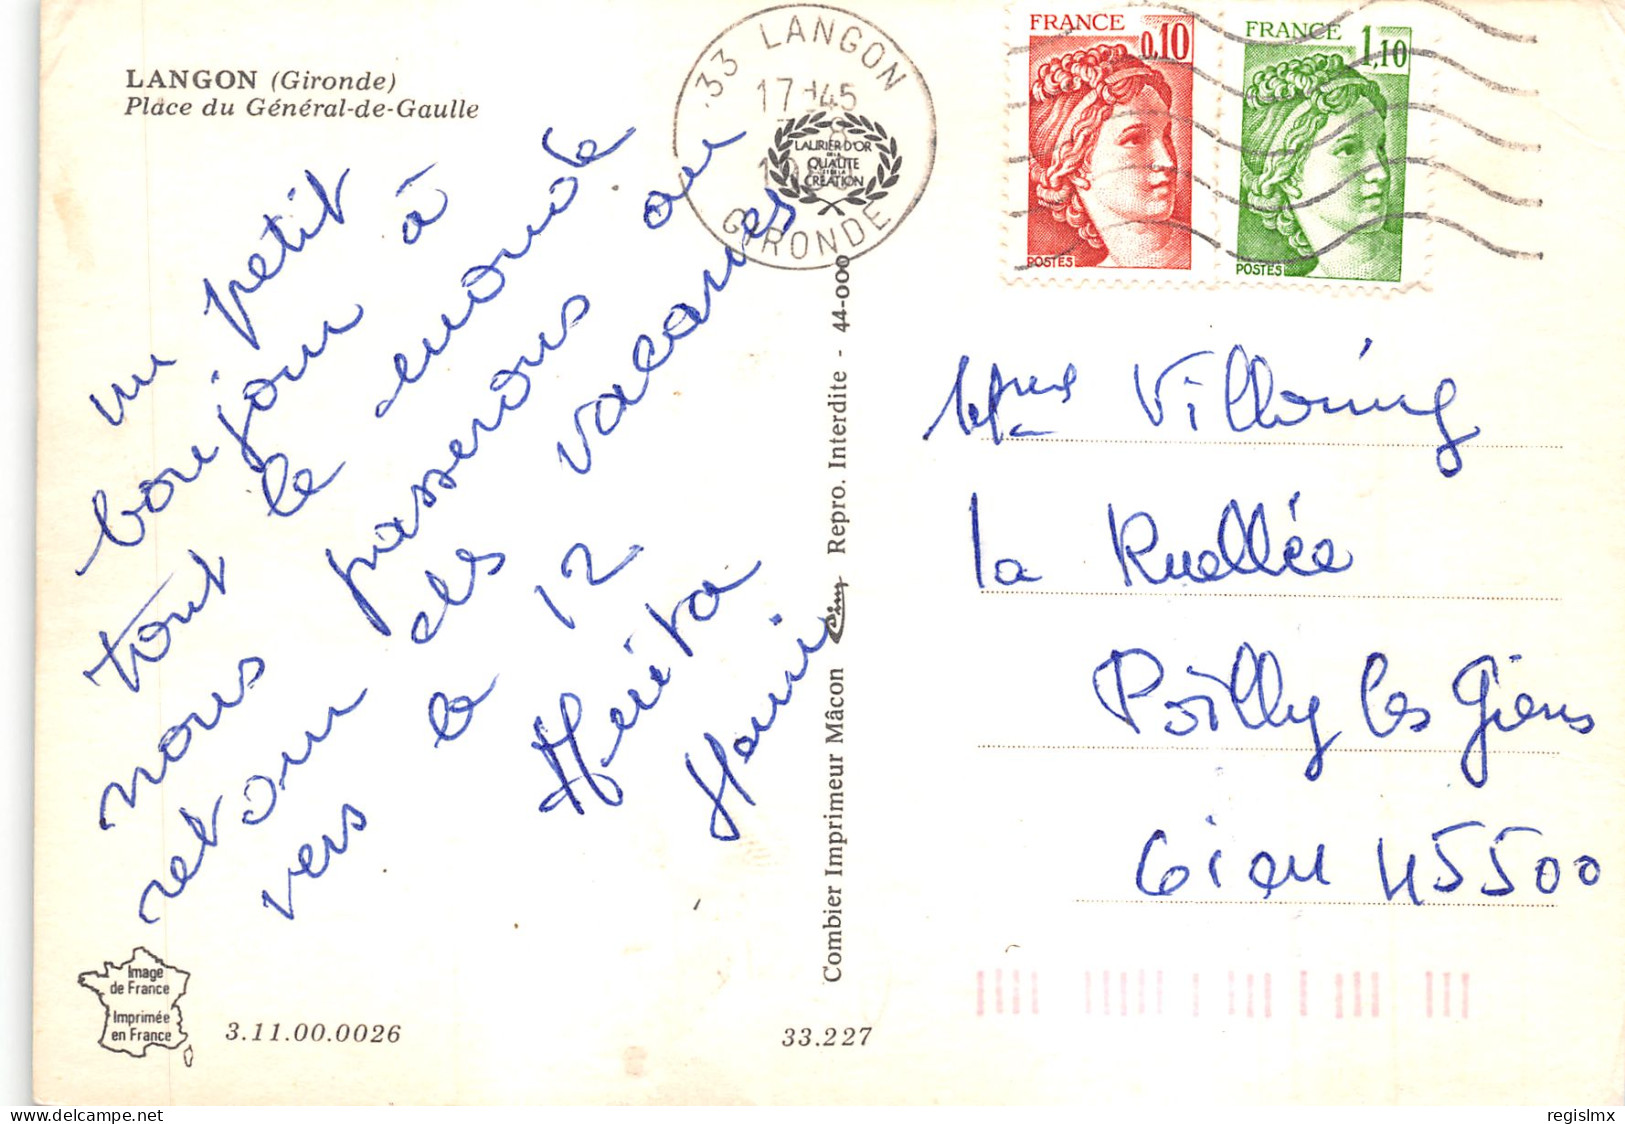 LANGON (Gironde)
Place du Général-de-Gaulle
un petit
bonjour à
tout le monde
nous passerons au
retour des vacances
vers le 12
Henri
33 LANGON
17-45
GIRONDE
LAURIER D'OR
QUALITE
CREATION
FRANCE
0,10
POSTES
FRANCE
1,10
POSTES
la Ruellée
Poilly les Giens
Gien 45500
Combier Imprimeur Mâcon Cim Repro. Interdite - 44-000
Image
de France
Imprimée
en France
3.11.00.0026
33.227
regislmx
delcampe.net